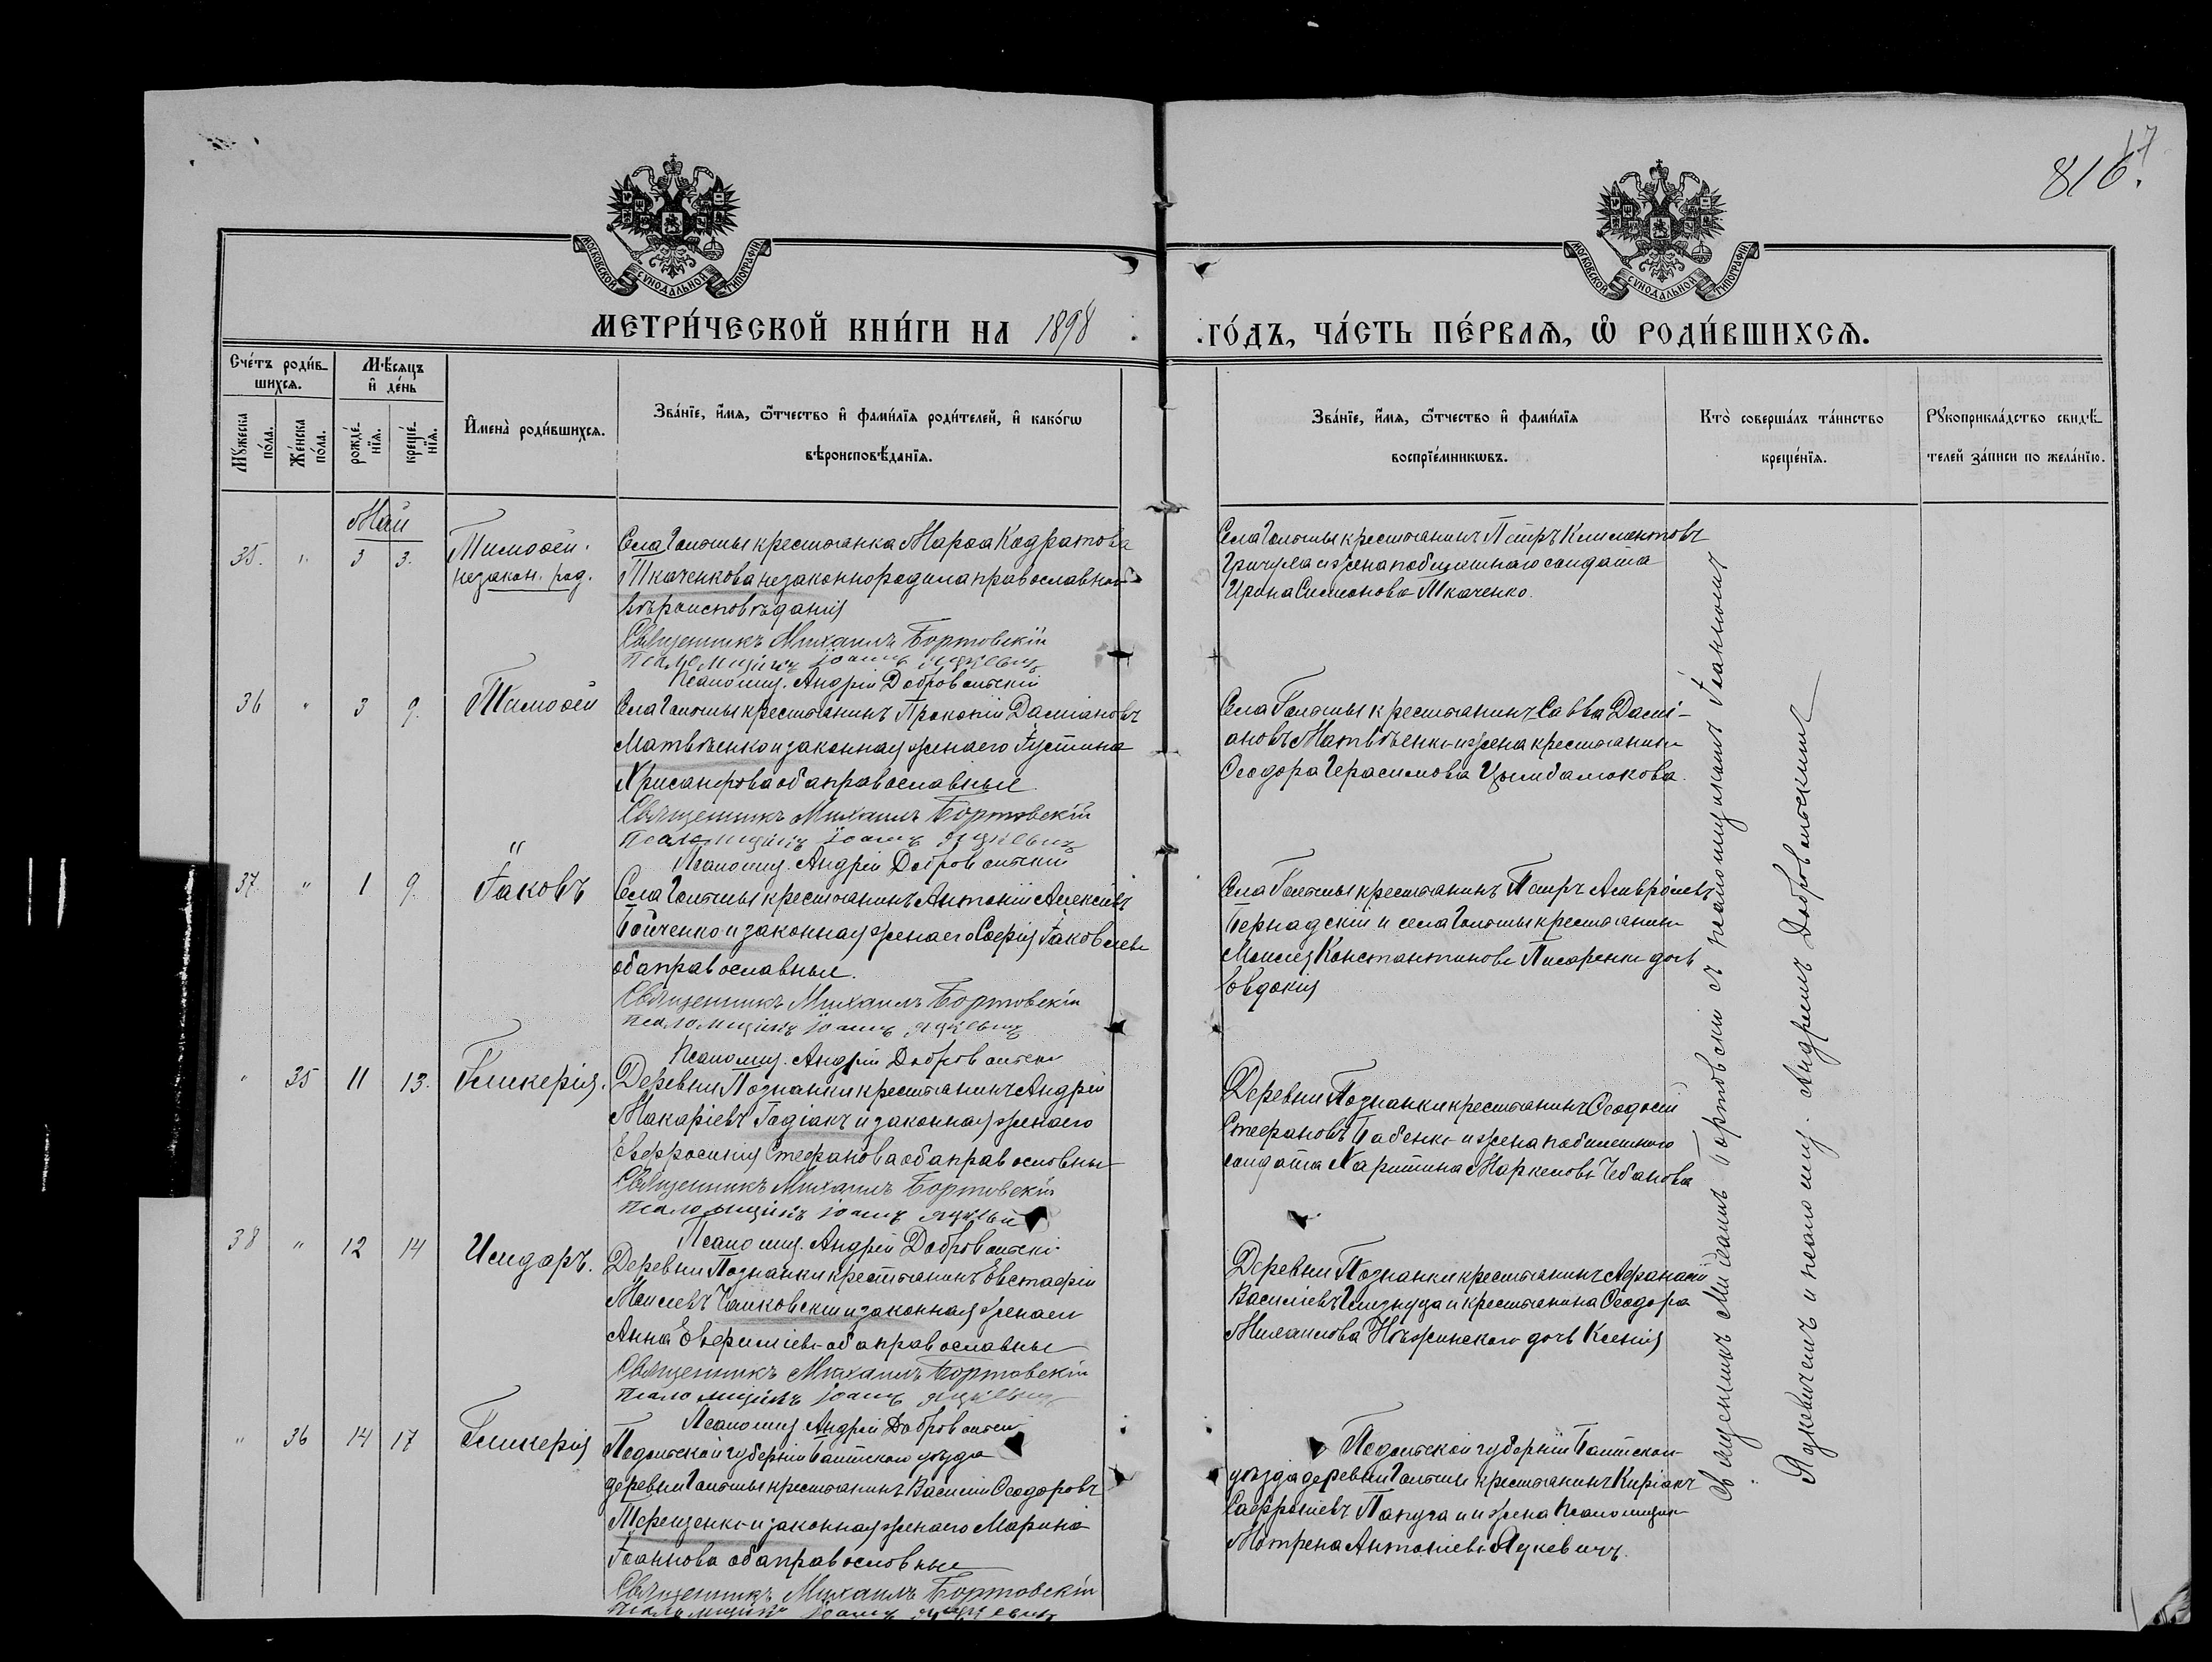 816.
17
МОСКОВСКОЙ СѴНОДАЛЬНОЙ ТИПОГРАФІИ
МОСКОВСКОЙ СѴНОДАЛЬНОЙ ТИПОГРАФІИ
МЕТРИ́ЧЕСКОЙ КНИ́ГИ НА 1898 ГО́ДЪ, ЧА́СТЬ ПЕ́РВАѦ, Ѽ РОДИ́ВШИХСѦ.
Сче́тъ роди́в-
шихсѧ.
Мѣ́сѧцъ
и҆ де́нь
Мꙋжеска по́ла.
Же́нска по́ла.
рожде́-
нїѧ.
креще́-
нїѧ.
И҆мена̀ роди́вшихсѧ.
Зва́нїе, и҆́мѧ, ѻ҆́тчество и҆ фами́лїѧ роди́телей, и҆ како́гѡ
вѣроисповѣ́данїѧ.
Зва́нїе, и҆́мѧ, ѻ҆́тчество и҆ фами́лїѧ
воспрїе́мникѡвъ.
Кто̀ соверша́лъ та́инство
креще́нїѧ.
Рꙋкоприкла́дство свидѣ́-
телей за́писи по жела́нїю.
Май
35. " 3 3. Тимоѳей.
незакон. род.
Села Гольмы крестьянка Марѳа Кодратова
Ткаченкова незаконнородила православнаго
вѣроисповѣданія
Священникъ Михаилъ Бортовскій
Псаломщикъ Іоаннъ Яцкевичъ
Псаломщ. Андрей Добровольскій
Села Гольмы крестьянинъ Петръ Климентовъ
Гричула и жена побилетнаго солдата
Ирина Симонова Ткаченко.
36 " 3 9. Тимоѳей
Села Гольмы крестьянинъ Прокопій Даміановъ
Матвѣенко и законная жена его Іустина
Хрисанфова оба православные.
Священникъ Михаилъ Бортовскій
Псаломщикъ Іоаннъ Яцкевичъ
Псаломщ. Андрей Добровольскій
Села Гольмы крестьянинъ Савва Дамі-
ановъ Матвѣенко и жена крестьянина
Ѳеодора Герасимова Цымбалюкова.
37 " 1 9. Іаковъ
Села Гольмы крестьянинъ Антоній Алексіевъ
Бойченко и законная жена его Софія Іаковлева
оба православные.
Священникъ Михаилъ Бортовскій
Псаломщикъ Іоаннъ Яцкевичъ
Псаломщ. Андрей Добровольскій
Села Гольмы крестьянинъ Петръ Амвросіевъ
Бернадскій и села Гольмы крестьянина
Моисея Константинова Писаренко дочь
Евдокія
" 35 11 13. Гликерія.
Деревни Познанки крестьянинъ Андрей
Макаріевъ Годіакъ и законная жена его
Евфросинія Стефанова оба православные
Священникъ Михаилъ Бортовскій
Псаломщикъ Іоаннъ Яцкевичъ
Псаломщ. Андрей Добровольскій
Деревни Познанки крестьянинъ Ѳеодосій
Стефановъ Бабенко и жена побилетнаго
солдата Харитина Маркелова Чебанова
38 " 12 14 Исидоръ.
Деревни Познанки крестьянинъ Евстафій
Моисеевъ Чайковскій и законная жена его
Анна Евфиміева оба православные
Священникъ Михаилъ Бортовскій
Псаломщикъ Іоаннъ Яцкевичъ
Псаломщ. Андрей Добровольскій
Деревни Познанки крестьянинъ Афанасій
Василіевъ и крестьянина Ѳеодора
Михаилова Нѣжинскаго дочь Ксенія
" 36 14 17 Гликерія
Подольской губерніи Балтскаго уѣзда
деревни Гольмы крестьянинъ Василій Ѳеодоровъ
Терещенко и законная жена его Марина
Іоаннова оба православные
Священникъ Михаилъ Бортовскій
Псаломщикъ Іоаннъ Яцкевичъ
Подольской губерніи Балтскаго
уѣзда деревни Гольмы крестьянинъ Киріакъ
Сафроніевъ Папуга и жена псаломщика
Мотрена Антоніева Яцкевичъ.
Священникъ Михаилъ Бортовскій съ псаломщикомъ Іоанномъ
Яцкевичемъ и псаломщ. Андреемъ Добровольскимъ